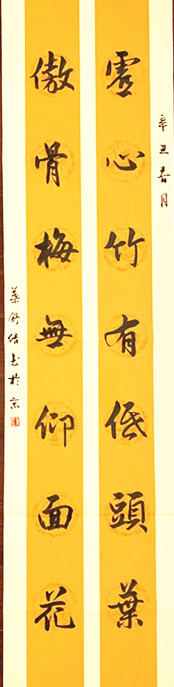 辛丑春月
虛心竹有低頭葉
傲骨梅無仰面花
葉舒浩书於京